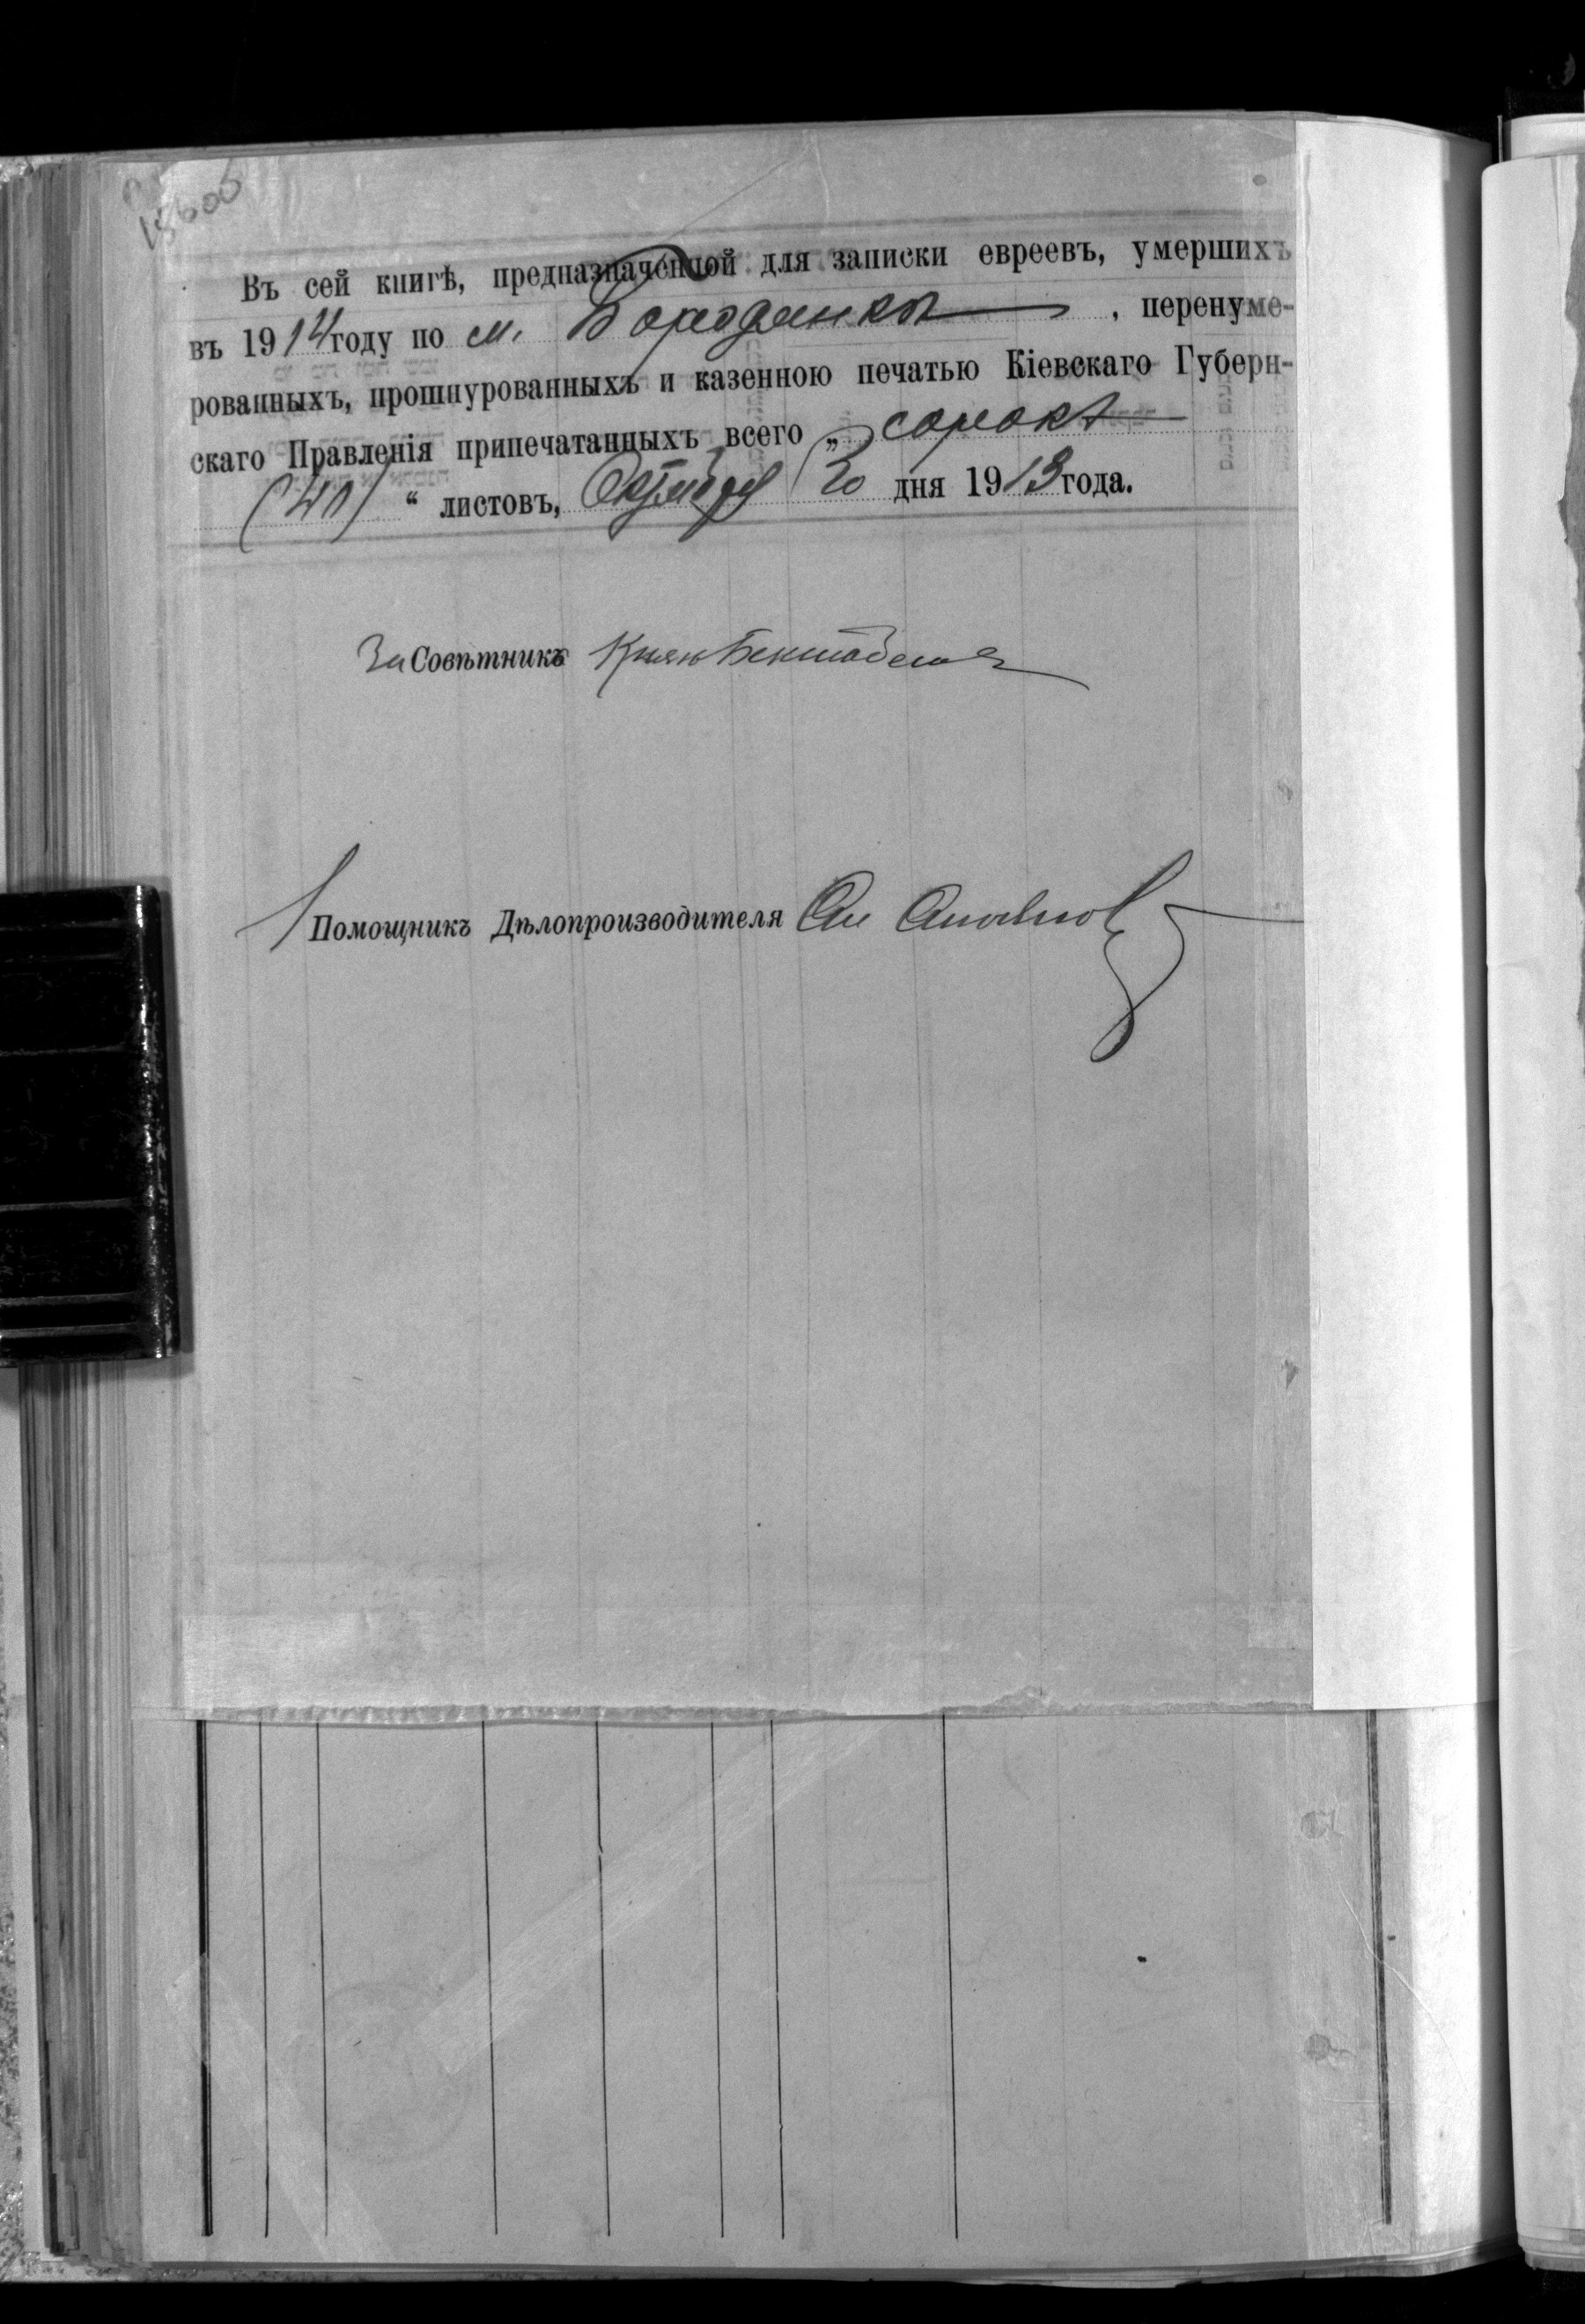 Въ сей книгѣ, предназначенной для записки евреевъ, умершихъ
въ 1914 году по м. Бородянкѣ, перенуме-
рованныхъ, прошнурованныхъ и казенною печатью Кіевскаго Губерн-
скаго Правленія припечатанныхъ всего „ сорокъ
(40) “ листовъ, Октября 30 дня 1913 года.
За Совѣтникъ Князь
Помощникъ Дѣлопроизводителя